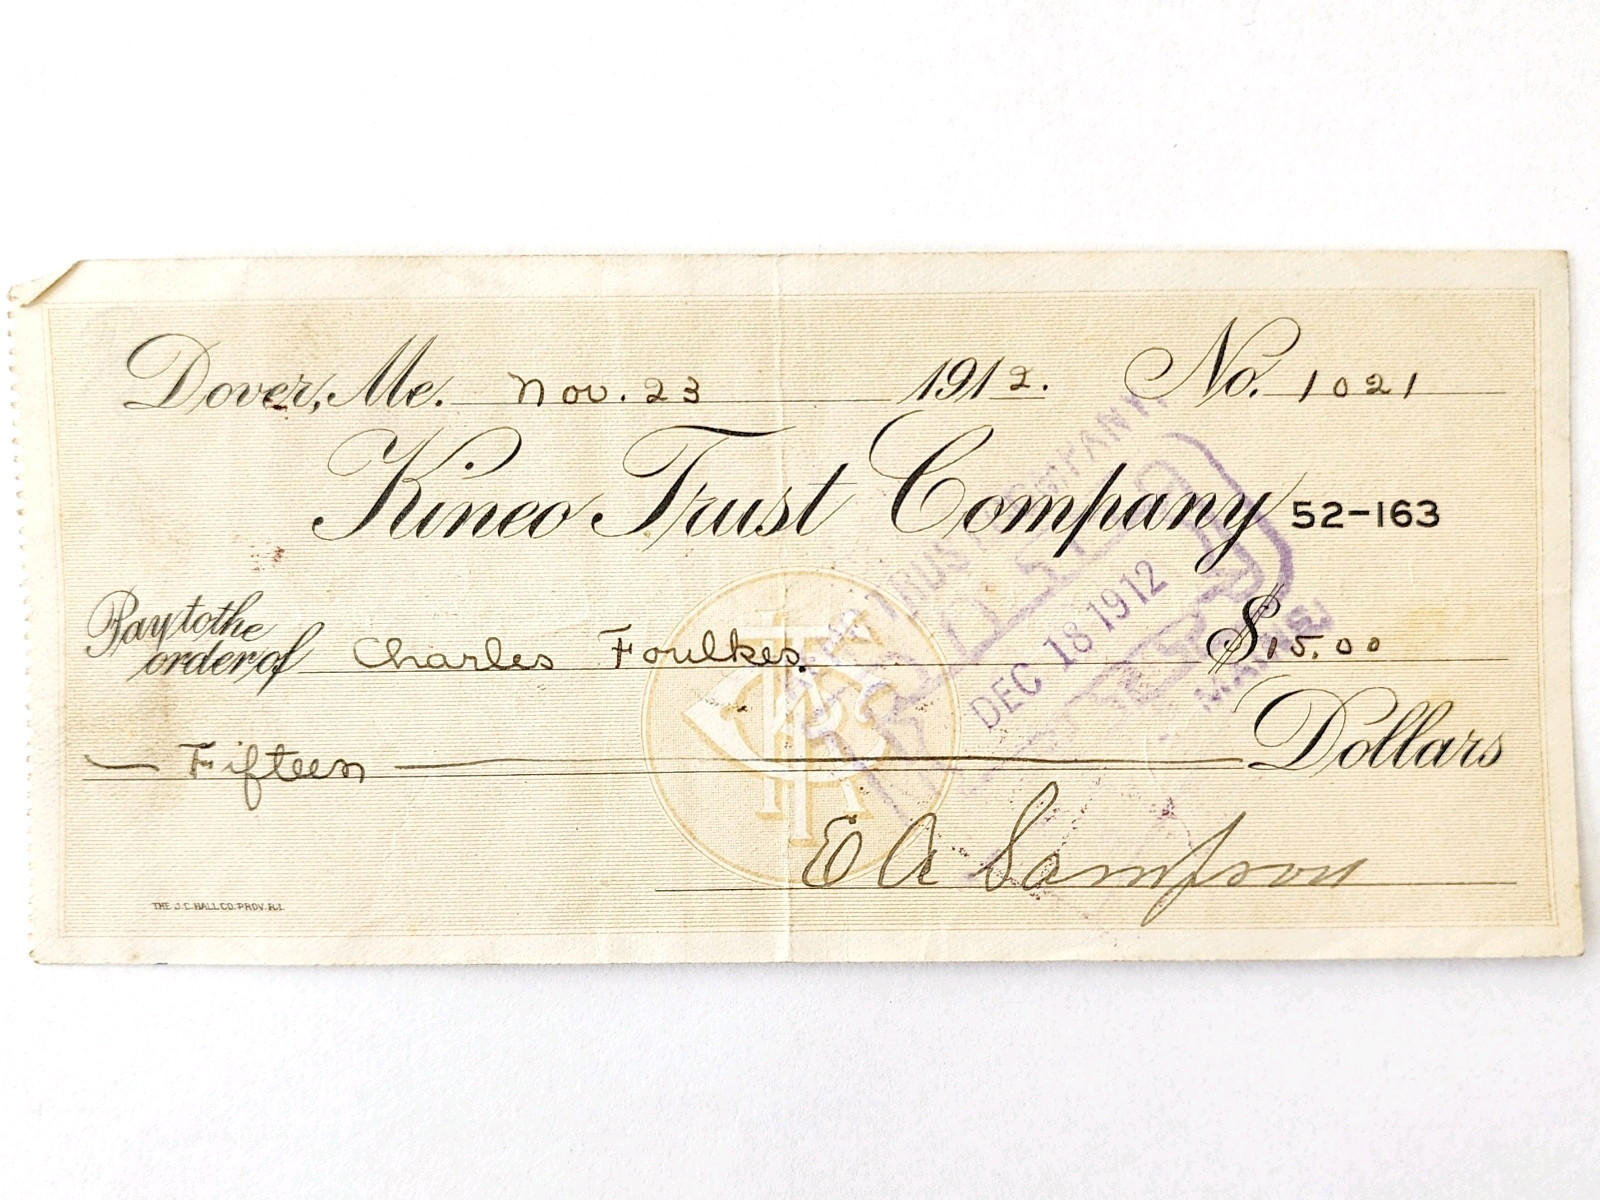 Dover, Me. Nov. 23 1912. No. 1021
Kineo Trust Company 52-163
Pay to the
order of Charles Foulkes. $15.00
Fifteen Dollars
E A Sampson
THE J.C. HALL CO. PROV. R.I.
TRUST COMPANY
DEC 18 1912